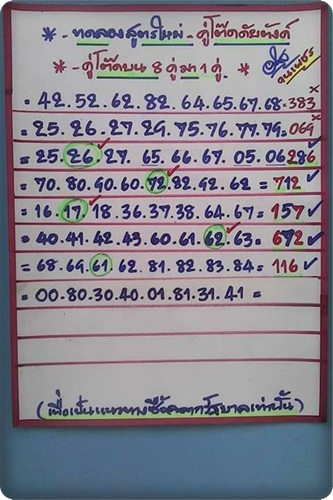 * - ทดลองสูตรใหม่ - คู่โต๊ดดับตังค์
* - คู่โต๊ดบน 8 คู่มา 1 คู่
= 42. 52. 62. 82. 64. 65. 67. 68. 383 ×
= 25. 26. 27. 29. 75. 76. 77. 79. 069 ×
= 25. 26 ✓ 27. 65. 66. 67. 05. 06 286 ✓
= 70. 80. 90. 60. 72 ✓ 82. 92. 62 = 712 ✓
= 16. 17 ✓ 18. 36. 37. 38. 64. 67 = 157 ✓
= 40. 41. 42. 43. 60. 61. 62 ✓ 63 = 672 ✓
= 68. 69. 61 ✓ 62. 81. 82. 83. 84 = 116 ✓
= 00. 80. 30. 40. 01. 81. 31. 41 =
(เพื่อเป็นแนวทางซื้อสลากรัฐบาลเท่านั้น)